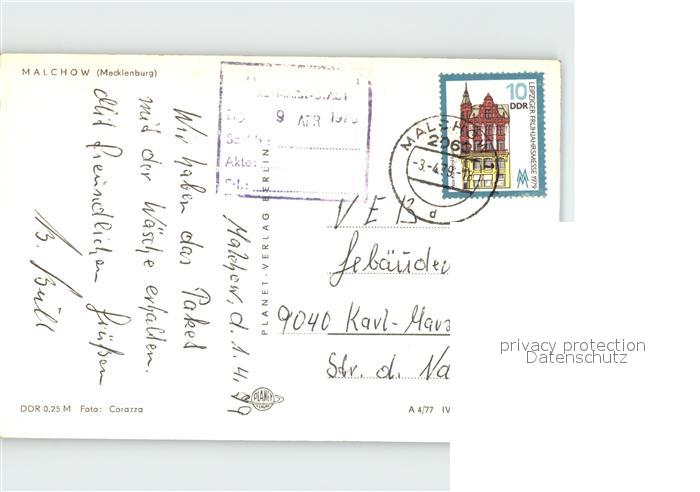 MALCHOW (Mecklenburg)
9 APR 197
Akte:
10
DDR
LEIPZIGER FRÜHJAHRSMESSE 1979
MALCHOW
2063
-3.-4.79.-
d
Malchow, d. 1. 4. 79
Wir haben das Paket
mit der Wäsche erhalten.
Mit freundlichen Grüßen
B. Büll
PLANET-VERLAG BERLIN
VEB
Gebäuder
9040 Karl-Marx
Str. d. Na
PLANET
DDR 0,25 M Foto: Corazza
A 4/77 IV
privacy protection
Datenschutz